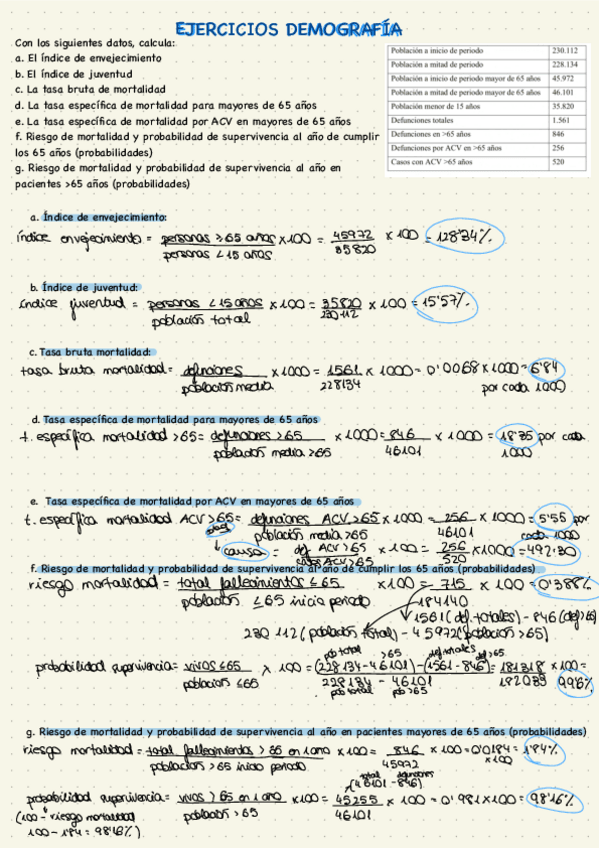 EJERCICIOS DEMOGRAFÍA
Con los siguientes datos, calcula:
a. El índice de envejecimiento
b. El índice de juventud
c. La tasa bruta de mortalidad
d. La tasa específica de mortalidad para mayores de 65 años
e. La tasa específica de mortalidad por ACV en mayores de 65 años
f. Riesgo de mortalidad y probabilidad de supervivencia al año de cumplir
los 65 años (probabilidades)
g. Riesgo de mortalidad y probabilidad de supervivencia al año en
pacientes >65 años (probabilidades)
Población a inicio de periodo 230.112
Población a mitad de periodo 228.134
Población a inicio de periodo mayor de 65 años 45.972
Población a mitad de periodo mayor de 65 años 46.101
Población menor de 15 años 35.820
Defunciones totales 1.561
Defunciones en >65 años 846
Defunciones por ACV en >65 años 256
Casos con ACV >65 años 520
a. Índice de envejecimiento:
índice envejecimiento = personas ≥65 años x100 = 45972 x 100 = 128'34%
personas <15 años 35820
b. Índice de juventud:
índice juventud = personas <15 años x 100 = 35820 x 100 = 15'57%
población total 230112
c. Tasa bruta mortalidad:
tasa bruta mortalidad = defunciones x1000 = 1561 x 1000 = 0'0068 x 1000 = 6'84
población media 228134 por cada 1000
d. Tasa específica de mortalidad para mayores de 65 años
t. específica mortalidad >65 = defunciones >65 x 1000 = 846 x 1000 = 18'35 por cada
población media >65 46101 1000
e. Tasa específica de mortalidad por ACV en mayores de 65 años
t. específica mortalidad ACV >65 = defunciones ACV >65 x 1000 = 256 x 1000 = 5'55 por
población media >65 46101 cada 1000
causa = def ACV >65 x 1000 = 256 x1000 = 492'30
casos ACV >65 520
f. Riesgo de mortalidad y probabilidad de supervivencia al año de cumplir los 65 años (probabilidades)
riesgo mortalidad = total fallecimientos ≤65 x100 = 715 x 100 = 0'388%
población ≤65 inicio periodo 184140
1561 (def. totales) - 846 (def >65)
230 112 (población total) - 45972 (población >65)
pob total >65 def. totales def >65
probabilidad supervivencia = vivos ≤65 x 100 = (228134-46101)-(1561-846) = 181318 x 100 =
población ≤65 228134 - 46101 182033 99'6%
pob total pob >65
g. Riesgo de mortalidad y probabilidad de supervivencia al año en pacientes mayores de 65 años (probabilidades)
riesgo mortalidad = total fallecimientos >65 en 1 año x 100 = 846 x 100 = 0'0184 = 1'84%
población >65 inicio periodo 45972 x100
total defunciones
(46101 - 846)
probabilidad supervivencia = vivos >65 en 1 año x 100 = 45255 x 100 = 0'981x100 = 98'16%
(100 - riesgo mortalidad población >65 46101
100 - 1'84 = 98'16%)